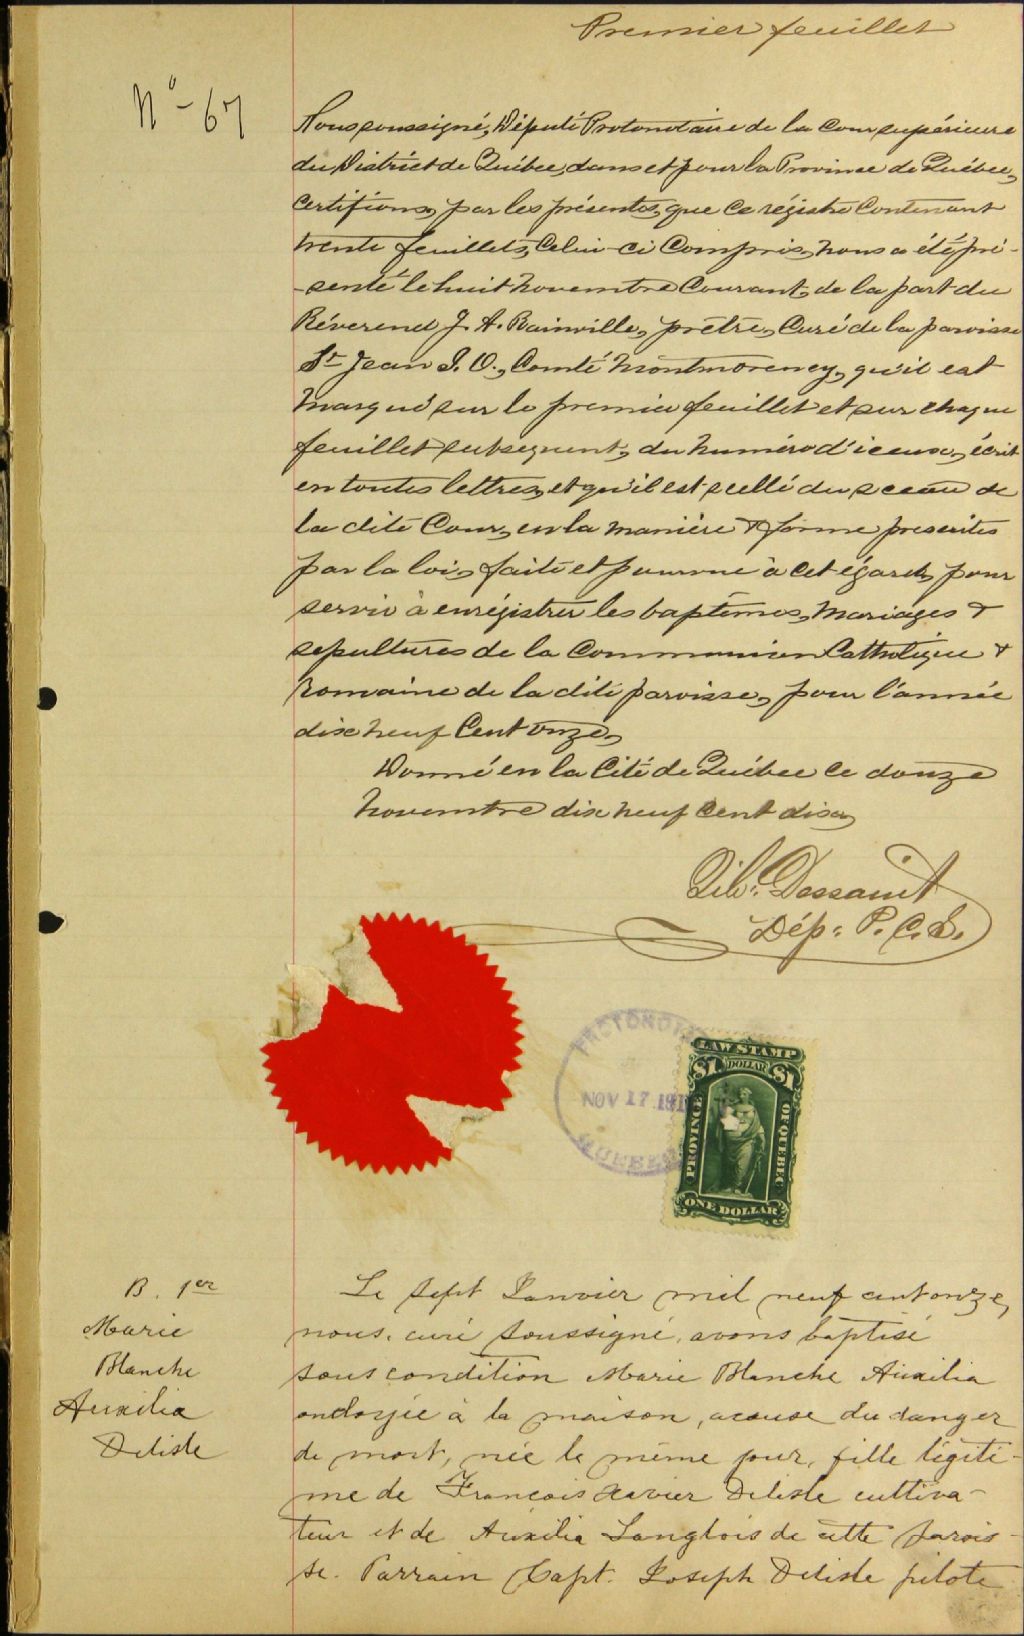 Premier feuillet
No- 67
Nous soussigné, Député Protonotaire de la Cour supérieure
du District de Québec, dans et pour la Province de Québec,
Certifions, par les présentes, que ce régistre contenant
trente feuillets, celui-ci compris, nous a été pré-
-senté le huit novembre courant, de la part du
Révérend J. A. Rainville, prêtre, Curé de la paroisse
St Jean I. O., Comté Montmorency, qu'il est
marqué sur le premier feuillet et sur chaque
feuillet subsequent, du numéro d'iceux, écrit
en toutes lettres, et qu'il est scellé du sceau de
la dite Cour, en la manière & forme prescrites
par la loi, faite et pourvue à cet égard, pour
servir à enrégistrer les baptêmes, mariages &
sepultures de la Communion Catholique &
Romaine de la dite paroisse, pour l'année
dix neuf cent onze,
Donné en la Cité de Québec ce douze
novembre dix neuf cent dix,
Dessault
Dép: P. C. S.
PROTONOT
NOV 17 191
QUEBEC
LAW STAMP
$1 DOLLAR $1
PROVINCE OF QUEBEC
ONE DOLLAR
B. 1er
Marie
Blanche
Auxilia
Delisle
Le sept Janvier mil neuf cent onze,
nous, curé soussigné, avons baptisé
sous condition Marie Blanche Auxilia
ondoyée à la maison, a cause du danger
de mort, née le même jour, fille légiti-
me de François Xavier Delisle cultiva-
teur et de Auxilia Langlois de cette parois
se. Parrain Capt. Joseph Delisle pilote